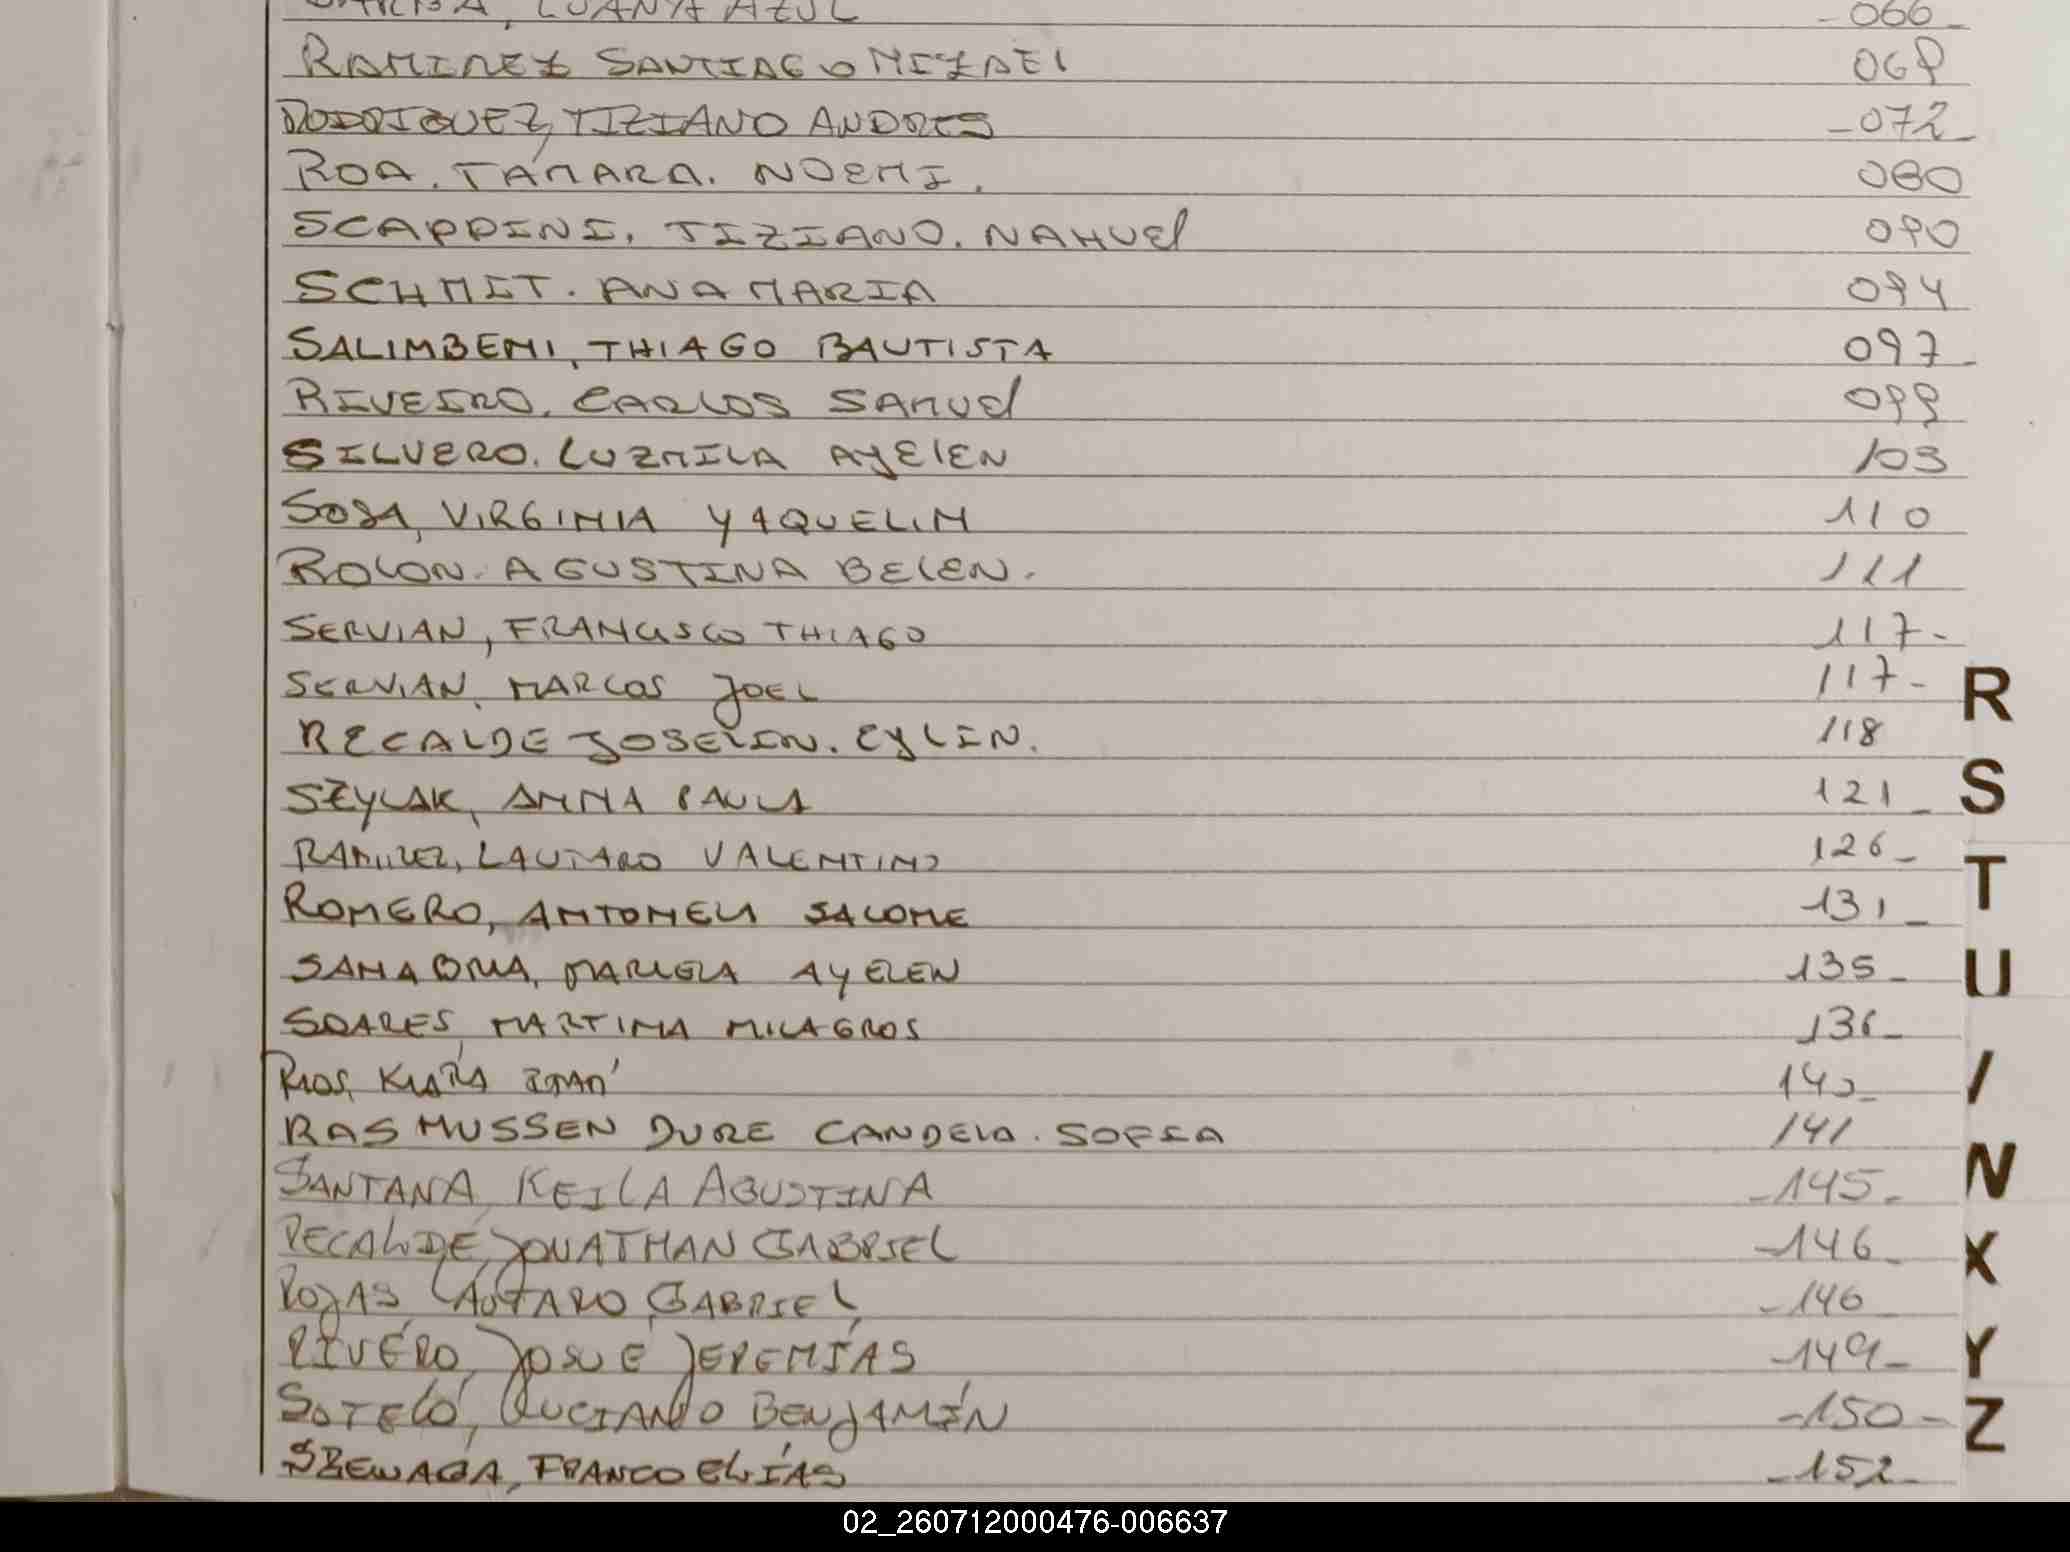 LUANA AZUL -066-
RAMIREZ SANTIAGO MIZAEL 068
RODRIGUEZ, TIZIANO ANDRES -072-
ROA. TAMARA. NOEMI. 080
SCAPPINI. TIZIANO. NAHUEL 090
SCHMIT. ANA MARIA 094
SALIMBENI, THIAGO BAUTISTA 097-
RIVEIRO. CARLOS SAMUEL 099
SILVERO. LUZMILA AYELEN 103
SOSA, VIRGINIA YAQUELIN 110
ROLON. AGUSTINA BELEN. 111
SERVIAN, FRANCISCO THIAGO 117-
SERVIAN, MARCOS JOEL 117-
RECALDE JOSELIN. EYLIN. 118
SZYLAK, ANNA PAULA 121-
RAMIREZ, LAUTARO VALENTINO 126-
ROMERO, ANTONELA SALOME 131-
SANABRIA, MARIELA AYELEN 135-
SOARES, MARTINA MILAGROS 136-
RIOS, KIARA ITATÍ 140-
RASMUSSEN DURE CANDELA. SOFIA 141
SANTANA, KEILA AGUSTINA -145-
RECALDE, JONATHAN GABRIEL -146-
ROJAS, LAUTARO GABRIEL -146-
RIVERO, JOSUÉ JEREMÍAS -149-
SOTELO, LUCIANO BENJAMÍN -150-
SZEWAGA, FRANCO ELÍAS -152-
R
S
T
U
/
N
X
Y
Z
02_260712000476-006637